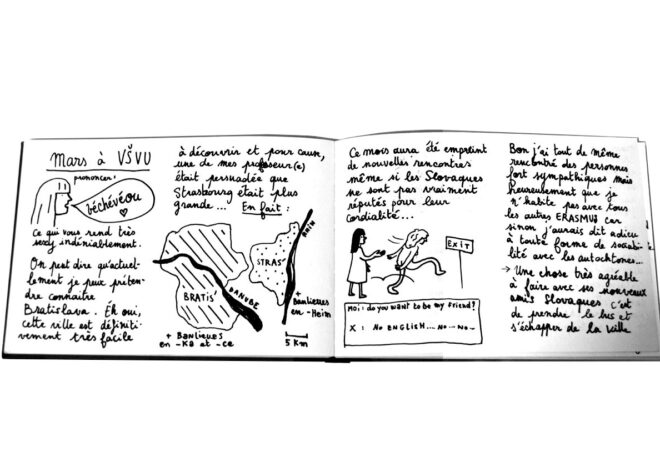 Mars à VŠVU
prononcer:
béchévéou
Ce qui vous rend très
sexy indéniablement.
On peut dire qu'actuel-
lement je peux préten-
dre connaitre
Bratislava. Eh oui,
cette ville est définiti-
vement très facile
à découvrir et pour cause,
une de mes professeur(e)
était persuadée que
Strasbourg était plus
grande... En fait:
BRATIS'
DANUBE
+ Banlieues
en -Ka et -ce
STRAS'
RHIN
+
Banlieues
en -Heim
5 Km
Ce mois aura été empreint
de nouvelles rencontres
même si les Slovaques
ne sont pas vraiment
réputés pour leur
cordialité...
EXIT
Moi: do you want to be my friend?
X : No ENGLISH... No - No -
Bon j'ai tout de même
rencontré des personnes
fort sympathiques mais
heureusement que je
n'habite pas avec tous
les autres ERASMUS car
sinon j'aurais dit adieu
à toute forme de sociabi-
lité avec les autochtones...
→ Une chose très agréable
à faire avec ses nouveaux
amis Slovaques c'est
de prendre le bus et
s'échapper de la ville